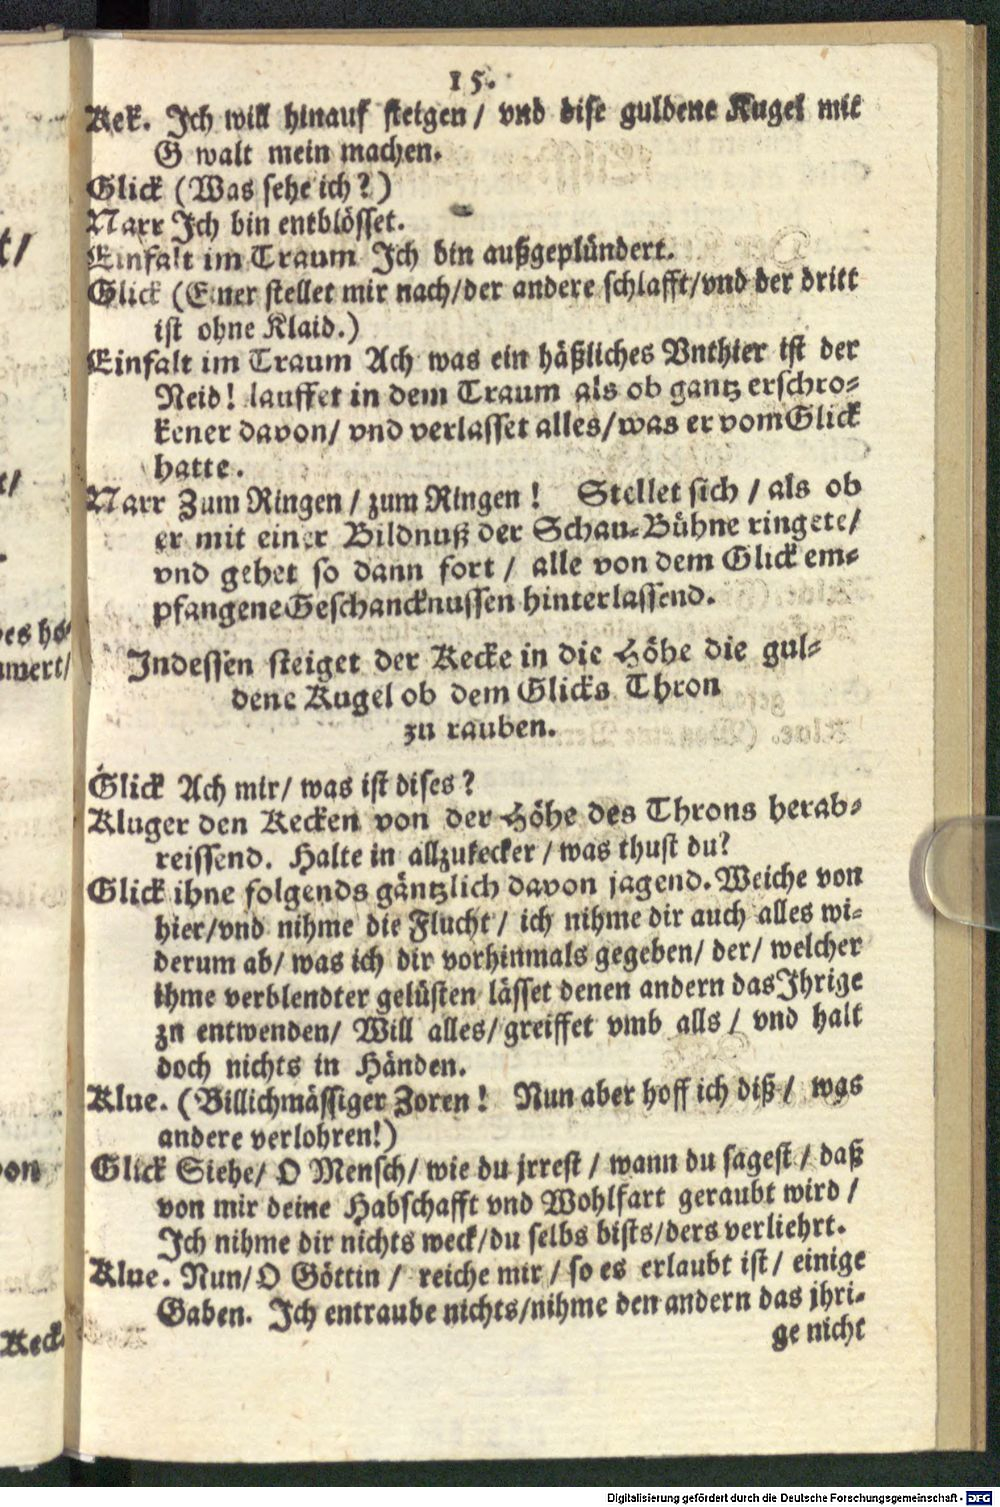 15.
Kek. Ich will hinauf steigen / vnd dise guldene Kugel mit
G walt mein machen.
Glick (Was sehe ich?)
Narr Ich bin entblösset.
Einfalt im Traum Ich bin außgeplündert.
Glick (Einer stellet mir nach/der andere schlafft/vnd der dritt
ist ohne Klaid.)
Einfalt im Traum Ach was ein häßliches Vnthier ist der
Neid! lauffet in dem Traum als ob gantz erschro-
kener davon/ vnd verlasset alles/was er vom Glick
hatte.
Narr Zum Ringen / zum Ringen ! Stellet sich / als ob
er mit einer Bildnuß der Schau-Bühne ringete/
vnd gehet so dann fort / alle von dem Glick em-
pfangene Geschancknussen hinterlassend.
Indessen steiget der Kecke in die Höhe die gul-
dene Kugel ob dem Glicks Thron
zu rauben.
Glick Ach mir/ was ist dises ?
Kluger den Kecken von der Höhe des Throns herab-
reissend. Halte in allzukecker / was thust du?
Glick ihne folgends gäntzlich davon jagend. Weiche von
hier/vnd nihme die Flucht / ich nihme dir auch alles wi-
derum ab/ was ich dir vorhinmals gegeben/ der/ welcher
ihme verblendter gelüsten lässet denen andern das Ihrige
zu entwenden/ Will alles/ greiffet vmb alls / vnd halt
doch nichts in Händen.
Klue. (Billichmässiger Zoren ! Nun aber hoff ich diß / was
andere verlohren!)
Glick Siehe/ O Mensch/ wie du jrrest / wann du sagest / daß
von mir deine Habschafft vnd Wohlfart geraubt wird /
Ich nihme dir nichts weck/du selbs bists/ders verliehrt.
Klue. Nun/ O Göttin / reiche mir / so es erlaubt ist / einige
Gaben. Ich entraube nichts/nihme den andern das jhri-
ge nicht
t/
t/
mert/
von
Keck-
Digitalisierung gefördert durch die Deutsche Forschungsgemeinschaft - DFG